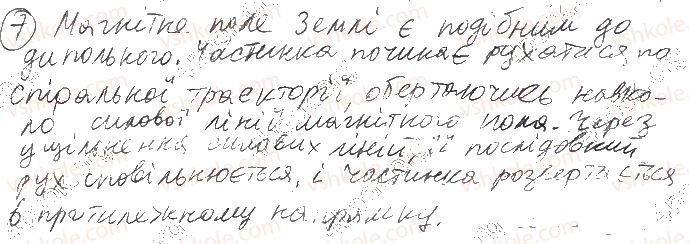 7 Магнітне поле Землі є подібним до
дипольного. Частинка починає рухатися по
спіральної траєкторії, обертаючись навко-
ло силової ліній магнітного поля. Через
ущільнення силових ліній, її послідовний
рух сповільнюється, і частинка розвертається
в протилежному напрямку.